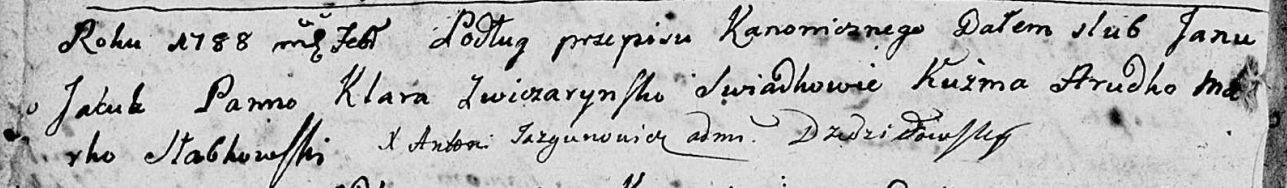 Roku 1788 Podług przepisu Kanonicznego Dałem slub Janu
Jakub Panno Klara Zwiczarynsko Swiadkowie Kuźma Arudko Ma
rko Słabkowski X Antoni Jazgunowicz adm.